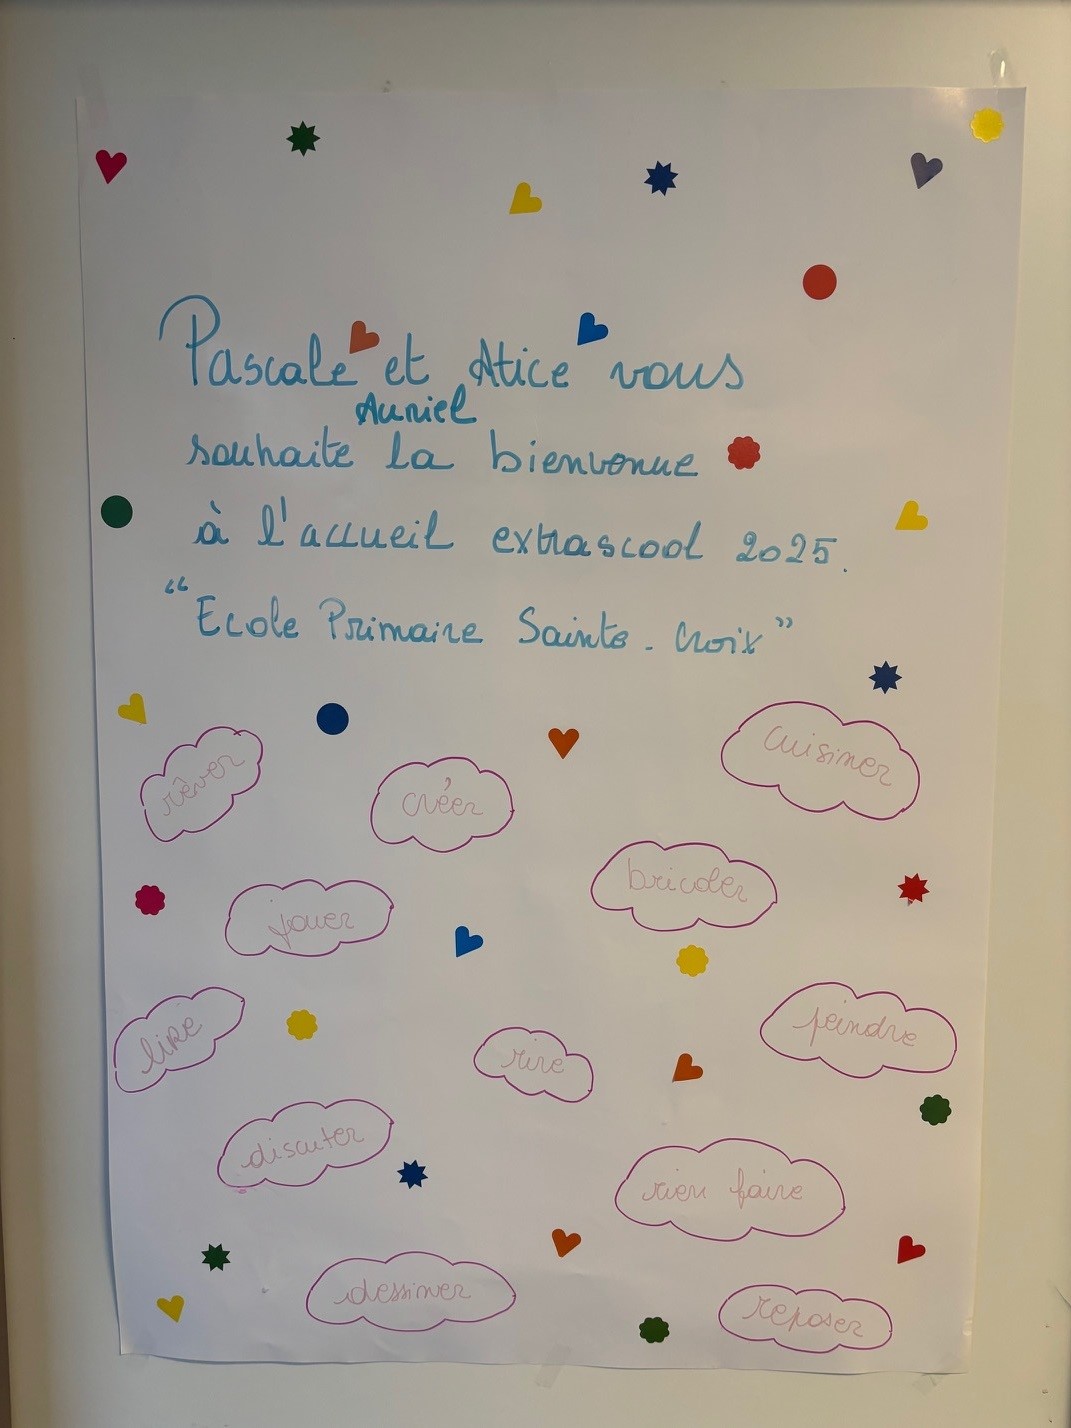 Pascale et Alice vous
Auriel
souhaite la bienvenue
à l'accueil extrascool 2025.
"Ecole Primaire Sainte-Croix"
rêver
créer
cuisiner
jouer
bricoler
lire
rire
peindre
discuter
rien faire
dessiner
reposer